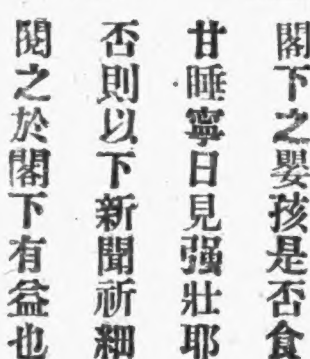 閣下之嬰孩是否食
甘睡寧日見强壯耶
否則以下新聞祈細
閱之於閣下有益也